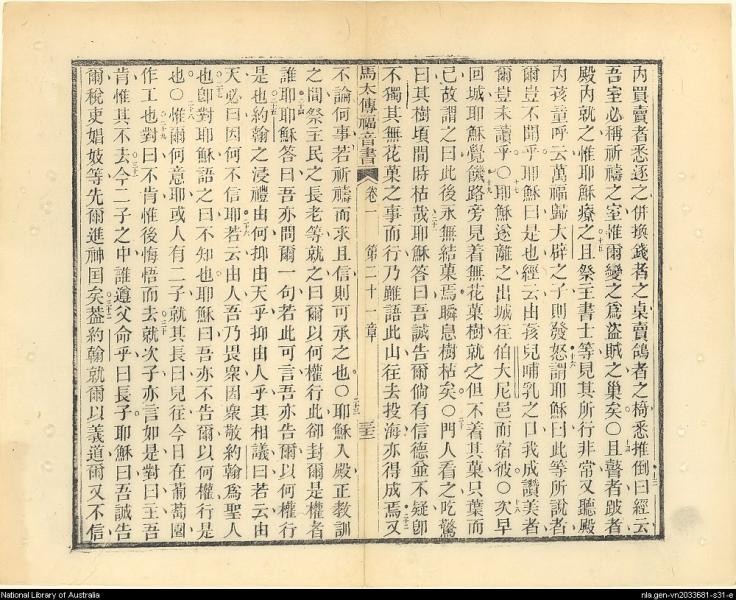 內買賣者悉逐之併換錢者之桌賣鴿者之椅悉推倒曰經云
吾室必稱祈禱之室惟爾變之爲盜賊之巢矣○且瞽者跛者
殿內就之惟耶穌療之且祭主書士等見其所行非常又聽殿
內孩童呼云萬福歸大辟之子則發怒謂耶穌曰此等所說者
爾豈不聞乎耶穌曰是也經云由孩兒哺乳之口我成讚美者
爾豈未讀乎○耶穌遂離之出城往伯大尼邑而宿彼○次早
回城耶穌覺饑路旁見着無花菓樹就之但不着其菓只葉而
已故謂之曰此後永無結菓焉瞬息樹枯矣○門人看之吃驚
曰其樹頃間時枯哉耶穌答曰吾誠告爾倘有信德並不疑卽
不獨其無花菓之事而行乃雖語此山往去投海亦得成焉又
馬太傳福音書 卷一 第二十一章
不論何事若祈禱而求且信則可承之也○耶穌入殿正教訓
之間祭主民之長老等就之曰爾以何權行此卻封爾是權者
誰耶耶穌答曰吾亦問爾一句若此可言吾亦告爾以何權行
是也約翰之浸禮由何抑由天乎抑由人乎其相議曰若云由
天必曰因何不信耶若云由人吾乃畏衆因衆敬約翰爲聖人
也卽對耶穌語之曰不知也耶穌曰吾亦不告爾以何權行是
也○惟爾何意耶或人有二子就其長曰兒往今日在葡萄園
作工也對曰不肯惟後悔悟而去就次子亦言如是對曰主吾
肯惟其不去今二子之中誰遵父命乎曰長子耶穌曰吾誠告
爾稅吏娼妓等先爾進神国矣葢約翰就爾以義道爾又不信
National Library of Australia
nla.gen-vn2033681-s31-e